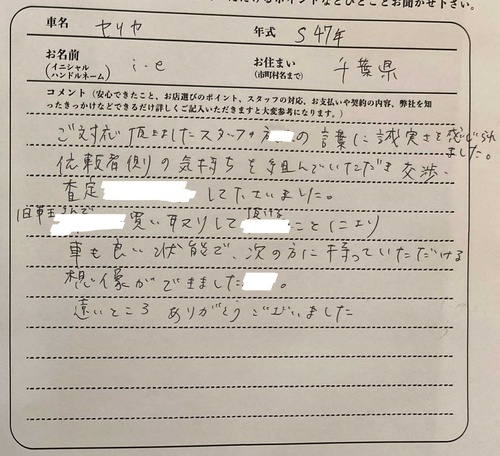 車名 セリカ 年式 S47年
お名前 (イニシャル ハンドルネーム) i-e お住まい (市町村名まで) 千葉県
コメント (安心できたこと、お店選びのポイント、スタッフの対応、お支払いや契約の内容、弊社を知
ったきっかけなどできるだけ詳しくご記入いただきますと大変参考になります。)
ご対応頂きましたスタッフの方の言葉に誠実さを感じられ
ました。
依頼者側の気持ちを組んでいただき交渉、
査定 していました。
旧車 買い取りして頂けることにより
車も良い状態で、次の方に持っていただける
想像ができました 。
遠いところ ありがとうございました